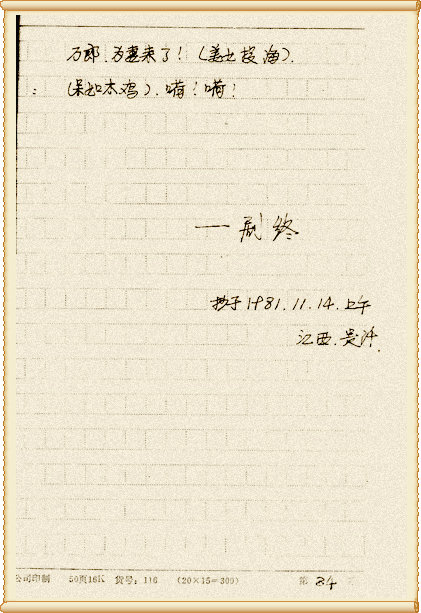 万郎.为妻来了!(盖世投海).
:(呆如木鸡).嗬!嗬!
一剧终
抄于1981.11.14.上午
江西.吴沣.
公司印制 50页16K 货号:116 (20×15=300) 第 34 页